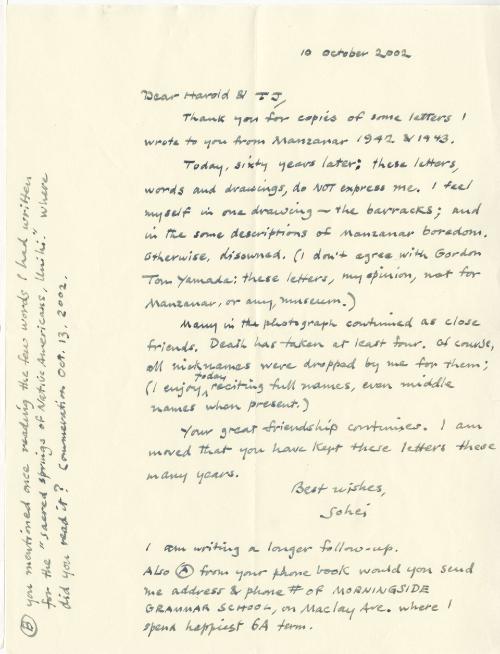 10 October 2002
Dear Harold & TJ,
Thank you for copies of some letters I
wrote to you from Manzanar 1942 & 1943.
Today, sixty years later; these letters,
words and drawings, do NOT express me. I feel
myself in one drawing — the barracks; and
in the some descriptions of Manzanar boredom.
Otherwise, disowned. (I don't agree with Gordon
Tom Yamada: these letters, my opinion, not for
Manzanar, or any, museum.)
Many in the photograph continued as close
friends. Death has taken at least four. Of course,
all nicknames were dropped by me for them;
(I enjoy, today reciting full names, even middle
names when present.)
Your great friendship continues. I am
moved that you have kept these letters these
many years.
Best wishes,
Sohei
I am writing a longer follow-up.
Also Ⓐ from your phone book would you send
me address & phone # of MORNINGSIDE
GRAMMAR SCHOOL, on Maclay Ave. where I
spend happiest 6A term.
Ⓑ you mentioned once reading the few words I had written
for the "sacred springs of Native Americans, " where
did you read it? Oct. 13, 2002.